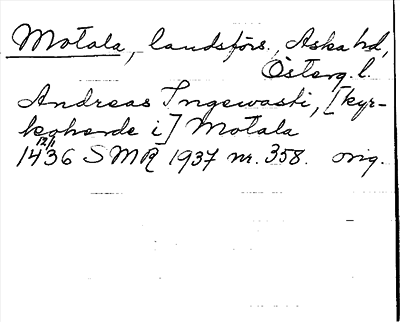 Motala, landsförs., Aska hd,
Österg. l.
Andreas Ingewasti, [kyr-
koherde i] Motala
12/1 1436 SMR 1937 nr. 358. orig.